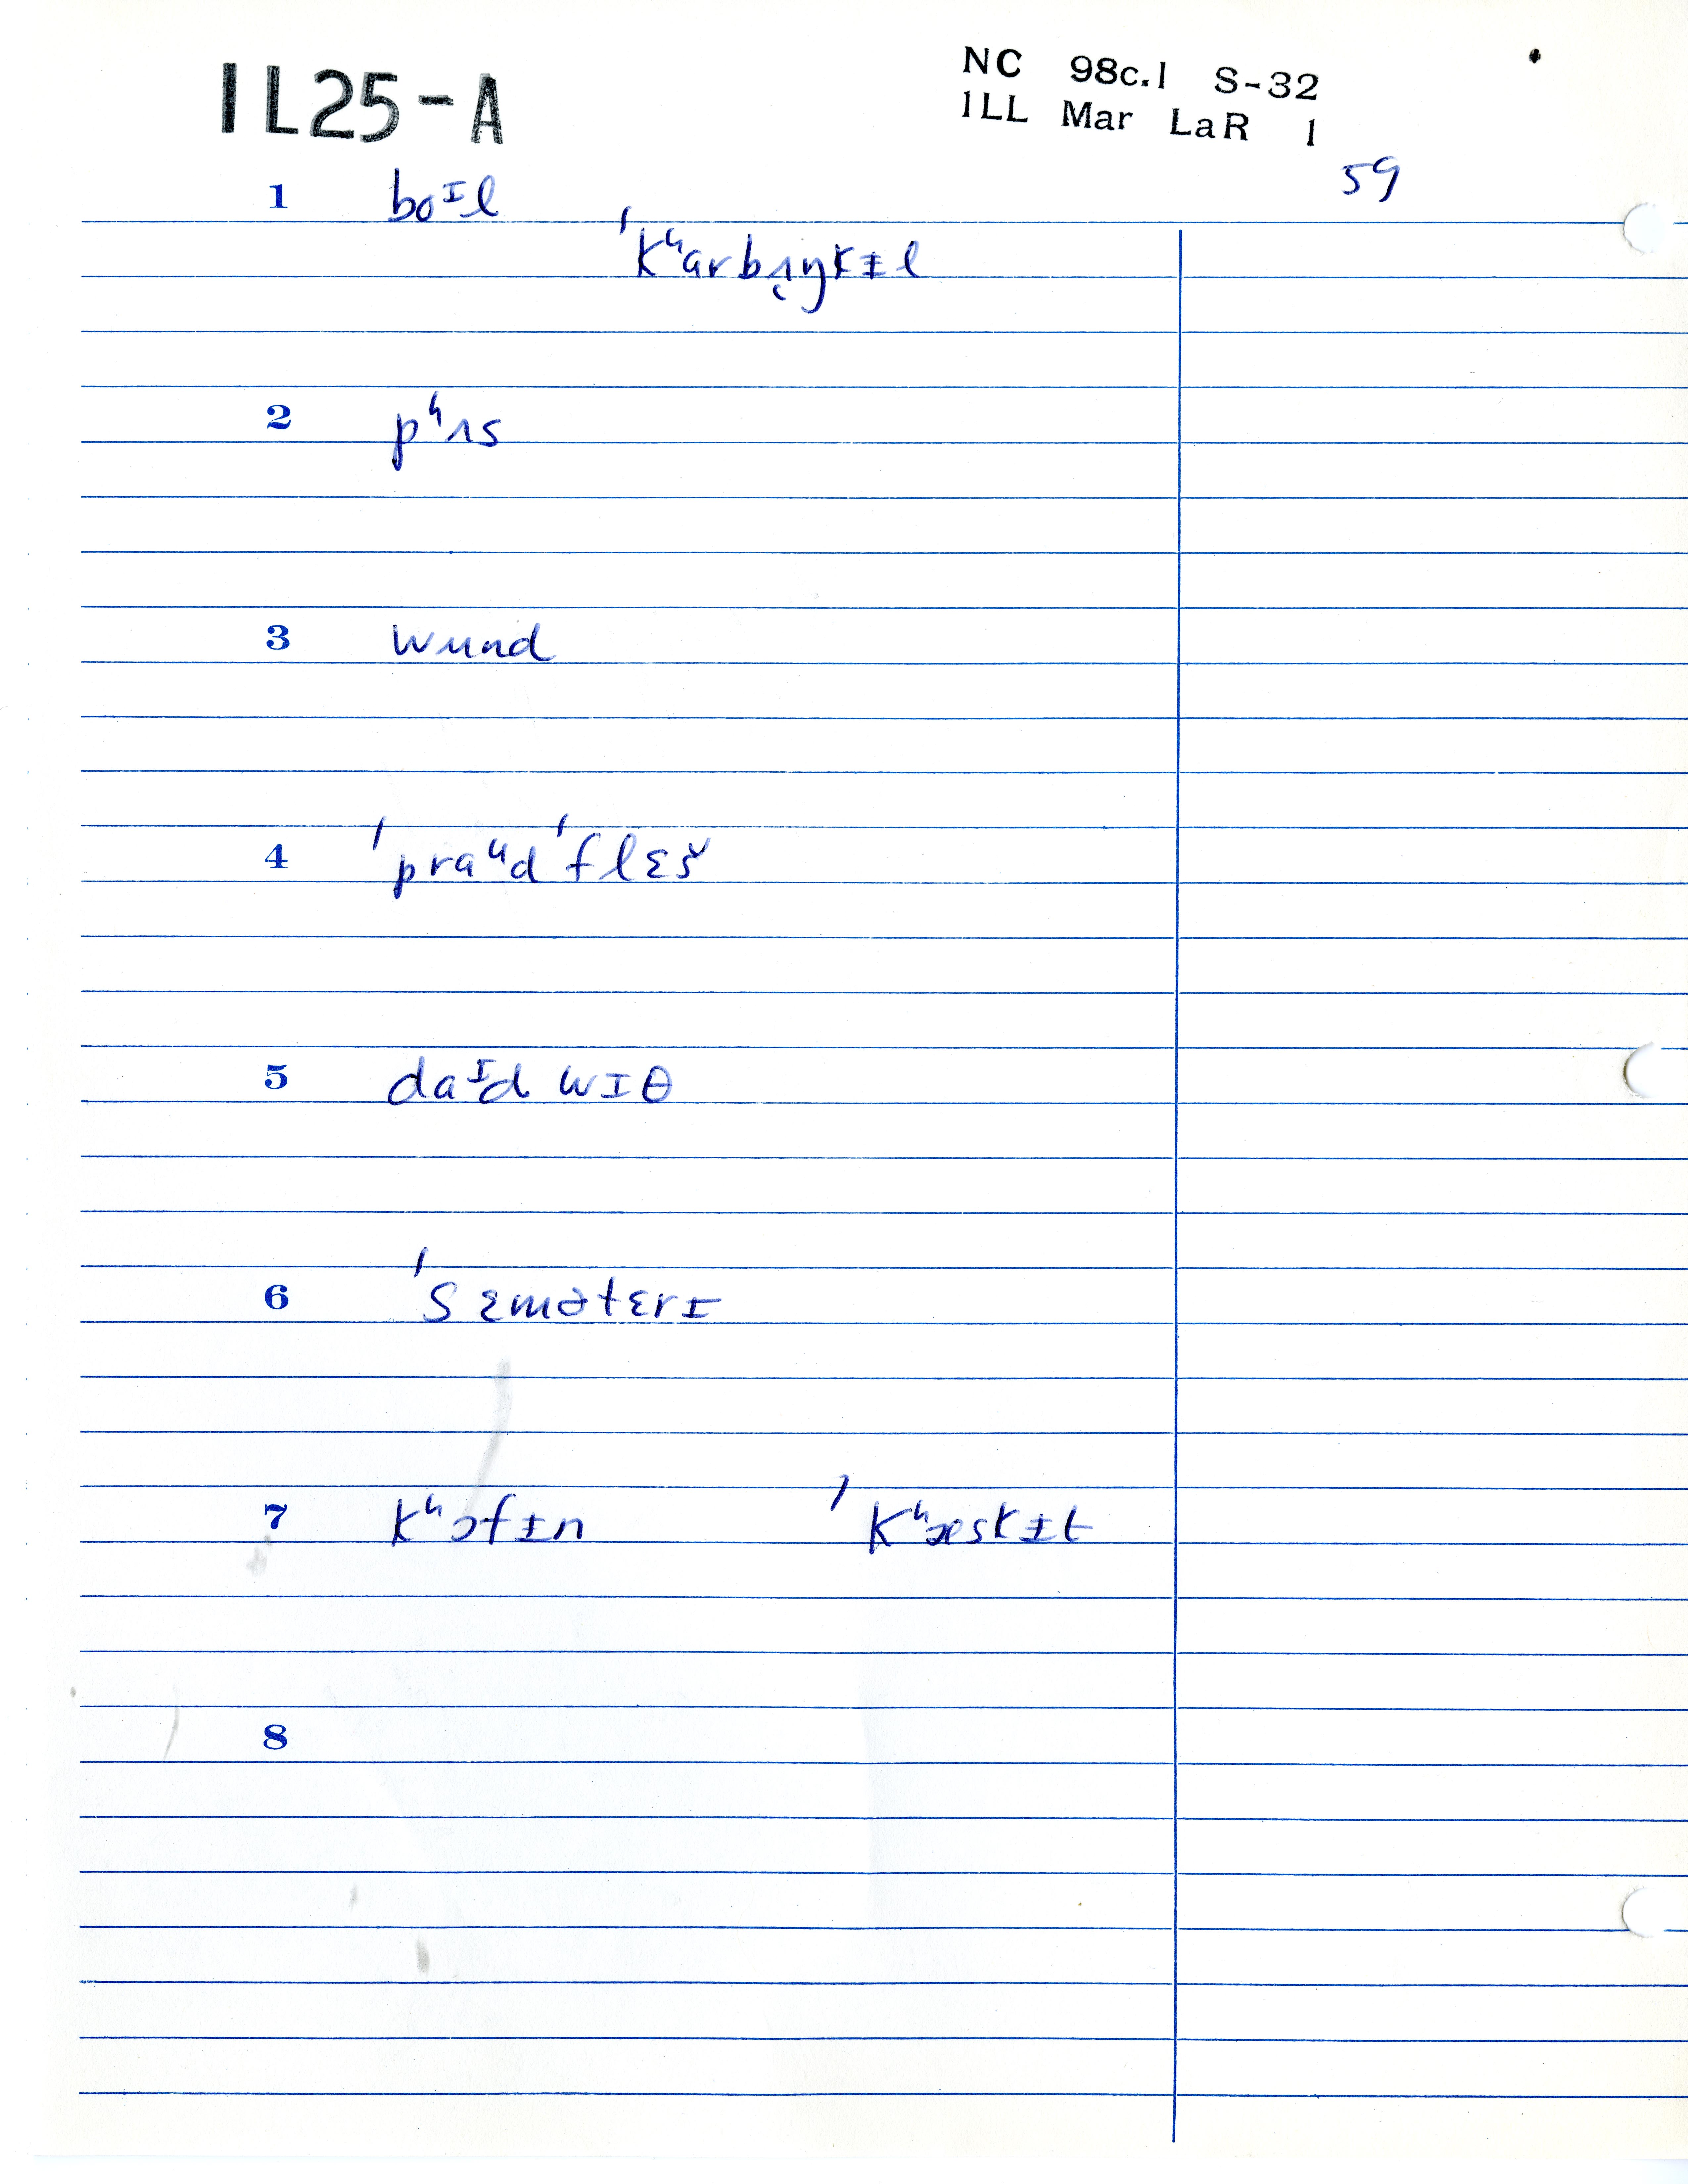 IL25-A
NC 98c.1 S-32
ILL Mar LaR 1
59
1 boᶦl
ˈkʰarbʌ̨ŋkɨl
2 pʰʌs
3 wund
4 ˈpraᵘdˈflɛš
5 daᶦd wɪθ
6 ˈsɛmətɛrɪ
7 kʰɔfɨn ˈkʰæskɨt
8